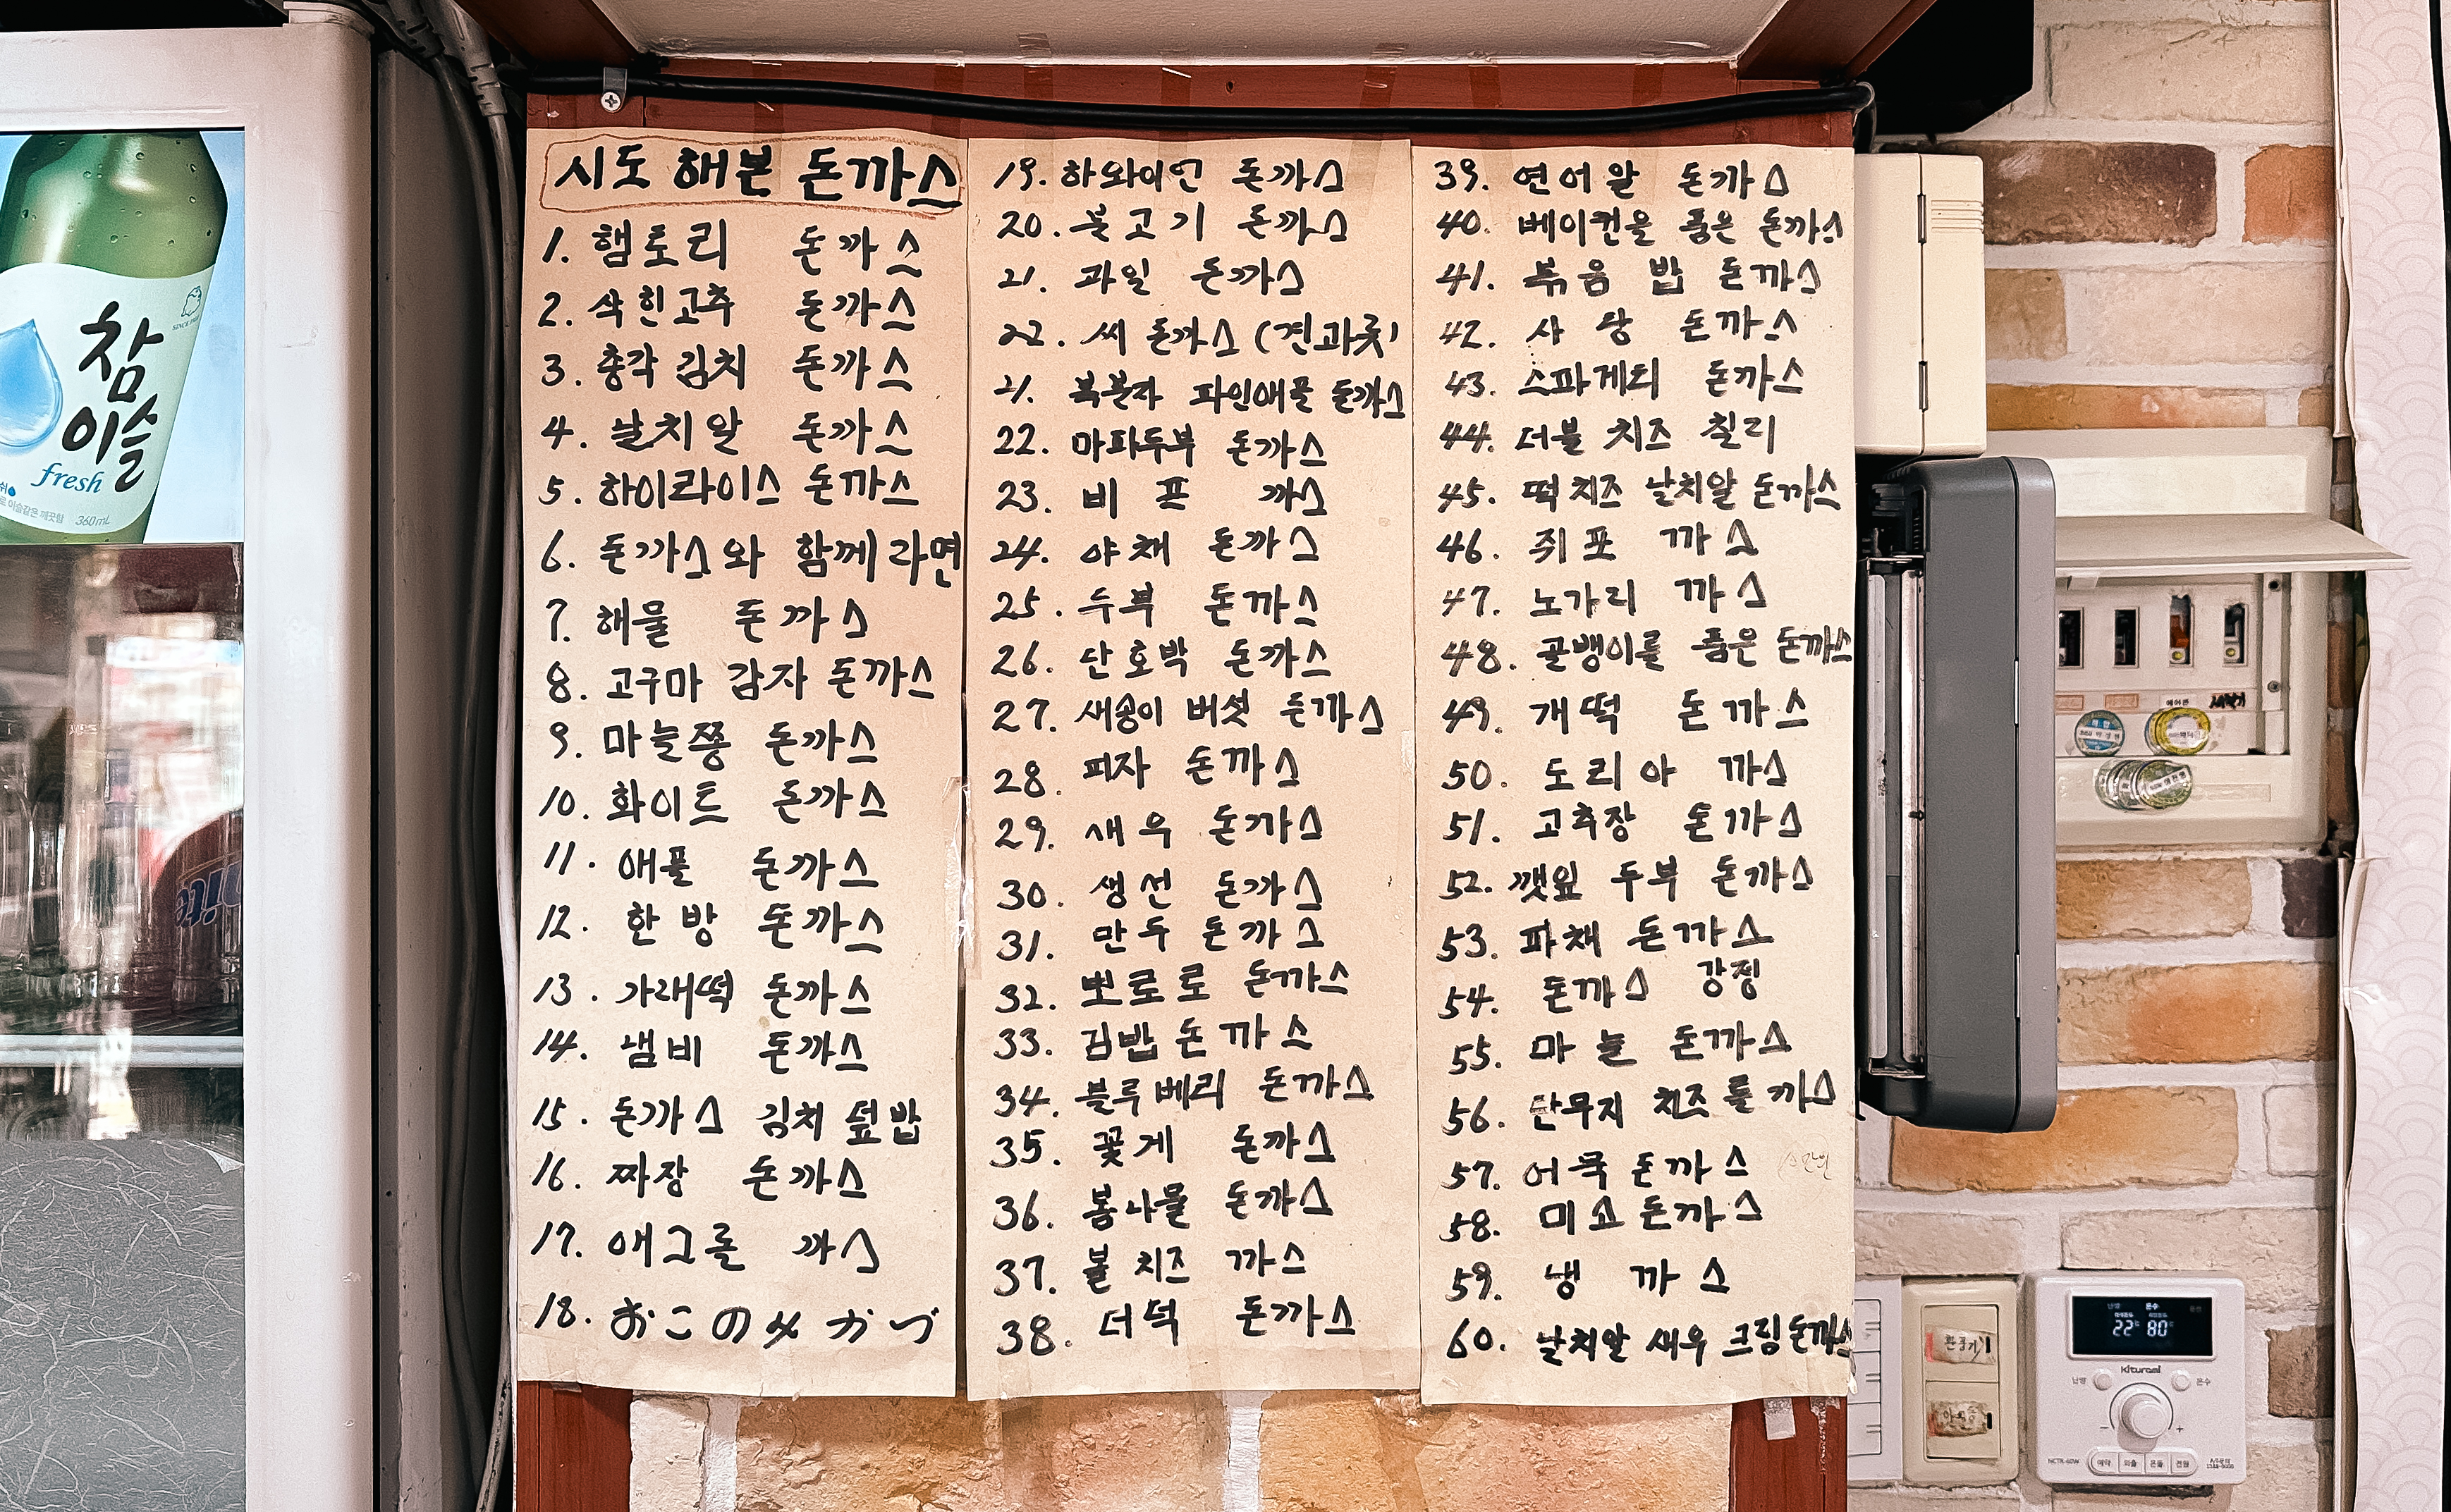 참
이슬
fresh
360mL
시도 해본 돈까스
1. 햄토리 돈까스
2. 삭힌고추 돈까스
3. 총각김치 돈까스
4. 날치알 돈까스
5. 하이라이스 돈까스
6. 돈까스와 함께라면
7. 해물 돈까스
8. 고구마 감자 돈까스
9. 마늘쫑 돈까스
10. 화이트 돈까스
11. 애플 돈까스
12. 한방 돈까스
13. 가래떡 돈까스
14. 냄비 돈까스
15. 돈까스 김치 덮밥
16. 짜장 돈까스
17. 애그롤 까스
18. おこのメカヅ
19. 하와이언 돈까스
20. 불고기 돈까스
21. 과일 돈까스
22. 씨돈까스 (견과류)
21. 복분자 파인애플 돈까스
22. 마파두부 돈까스
23. 비프 까스
24. 야채 돈까스
25. 두부 돈까스
26. 단호박 돈까스
27. 새송이 버섯 돈까스
28. 피자 돈까스
29. 새우 돈까스
30. 생선 돈까스
31. 만두 돈까스
32. 뽀로로 돈까스
33. 김밥돈까스
34. 블루베리 돈까스
35. 꽃게 돈까스
36. 봄나물 돈까스
37. 볼치즈 까스
38. 더덕 돈까스
39. 연어알 돈까스
40. 베이컨을 품은 돈까스
41. 볶음밥 돈까스
42. 사탕 돈까스
43. 스파게티 돈까스
44. 더블 치즈 칠리
45. 떡치즈 날치알 돈까스
46. 쥐포 까스
47. 노가리 까스
48. 골뱅이를 품은 돈까스
49. 개떡 돈까스
50. 도리아 까스
51. 고추장 돈까스
52. 깻잎 두부 돈까스
53. 파채 돈까스
54. 돈까스 강정
55. 마늘 돈까스
56. 단무지 치즈롤까스
57. 어묵돈까스
58. 미소돈까스
59. 냉 까스
60. 날치알 새우 크림돈까스
에어콘
환풍기
22 80
Kiturami
난방
온수
NCTR-60W
예약
외출
온돌
전원